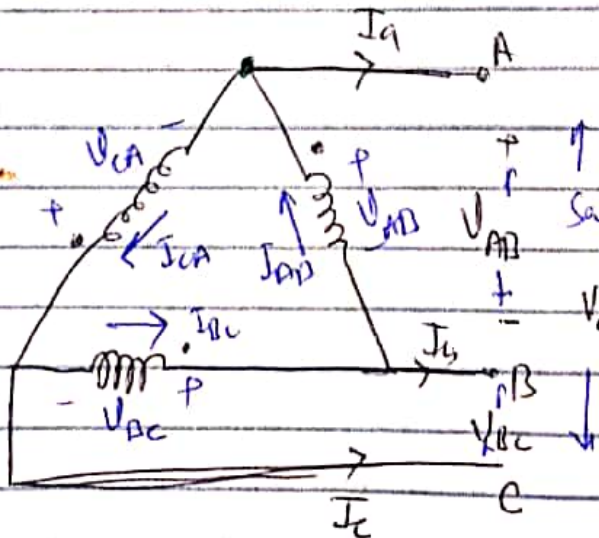 Ia
A
VCA -
+
ICA
IAB
P
VAB
+
VAB
-
Sa
IBC
Ib
B
- P
VBC
VBC
Ic
C